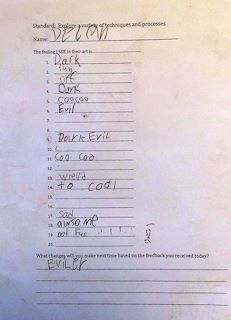 Standard: Explore a variety of techniques and processes
Name:
The feeling I SEE in their art is...
1. Dark
2.
3.
4. Dark
5. coocoo
6. Evil
7.
8.
9. Dark Evil
10.
11. Coo Coo
12.
13. wield
14. to cool
15.
16.
17. sad
18. awsome
19. not
20.
What changes will you make next time based on the feedback you received today?
EVILER